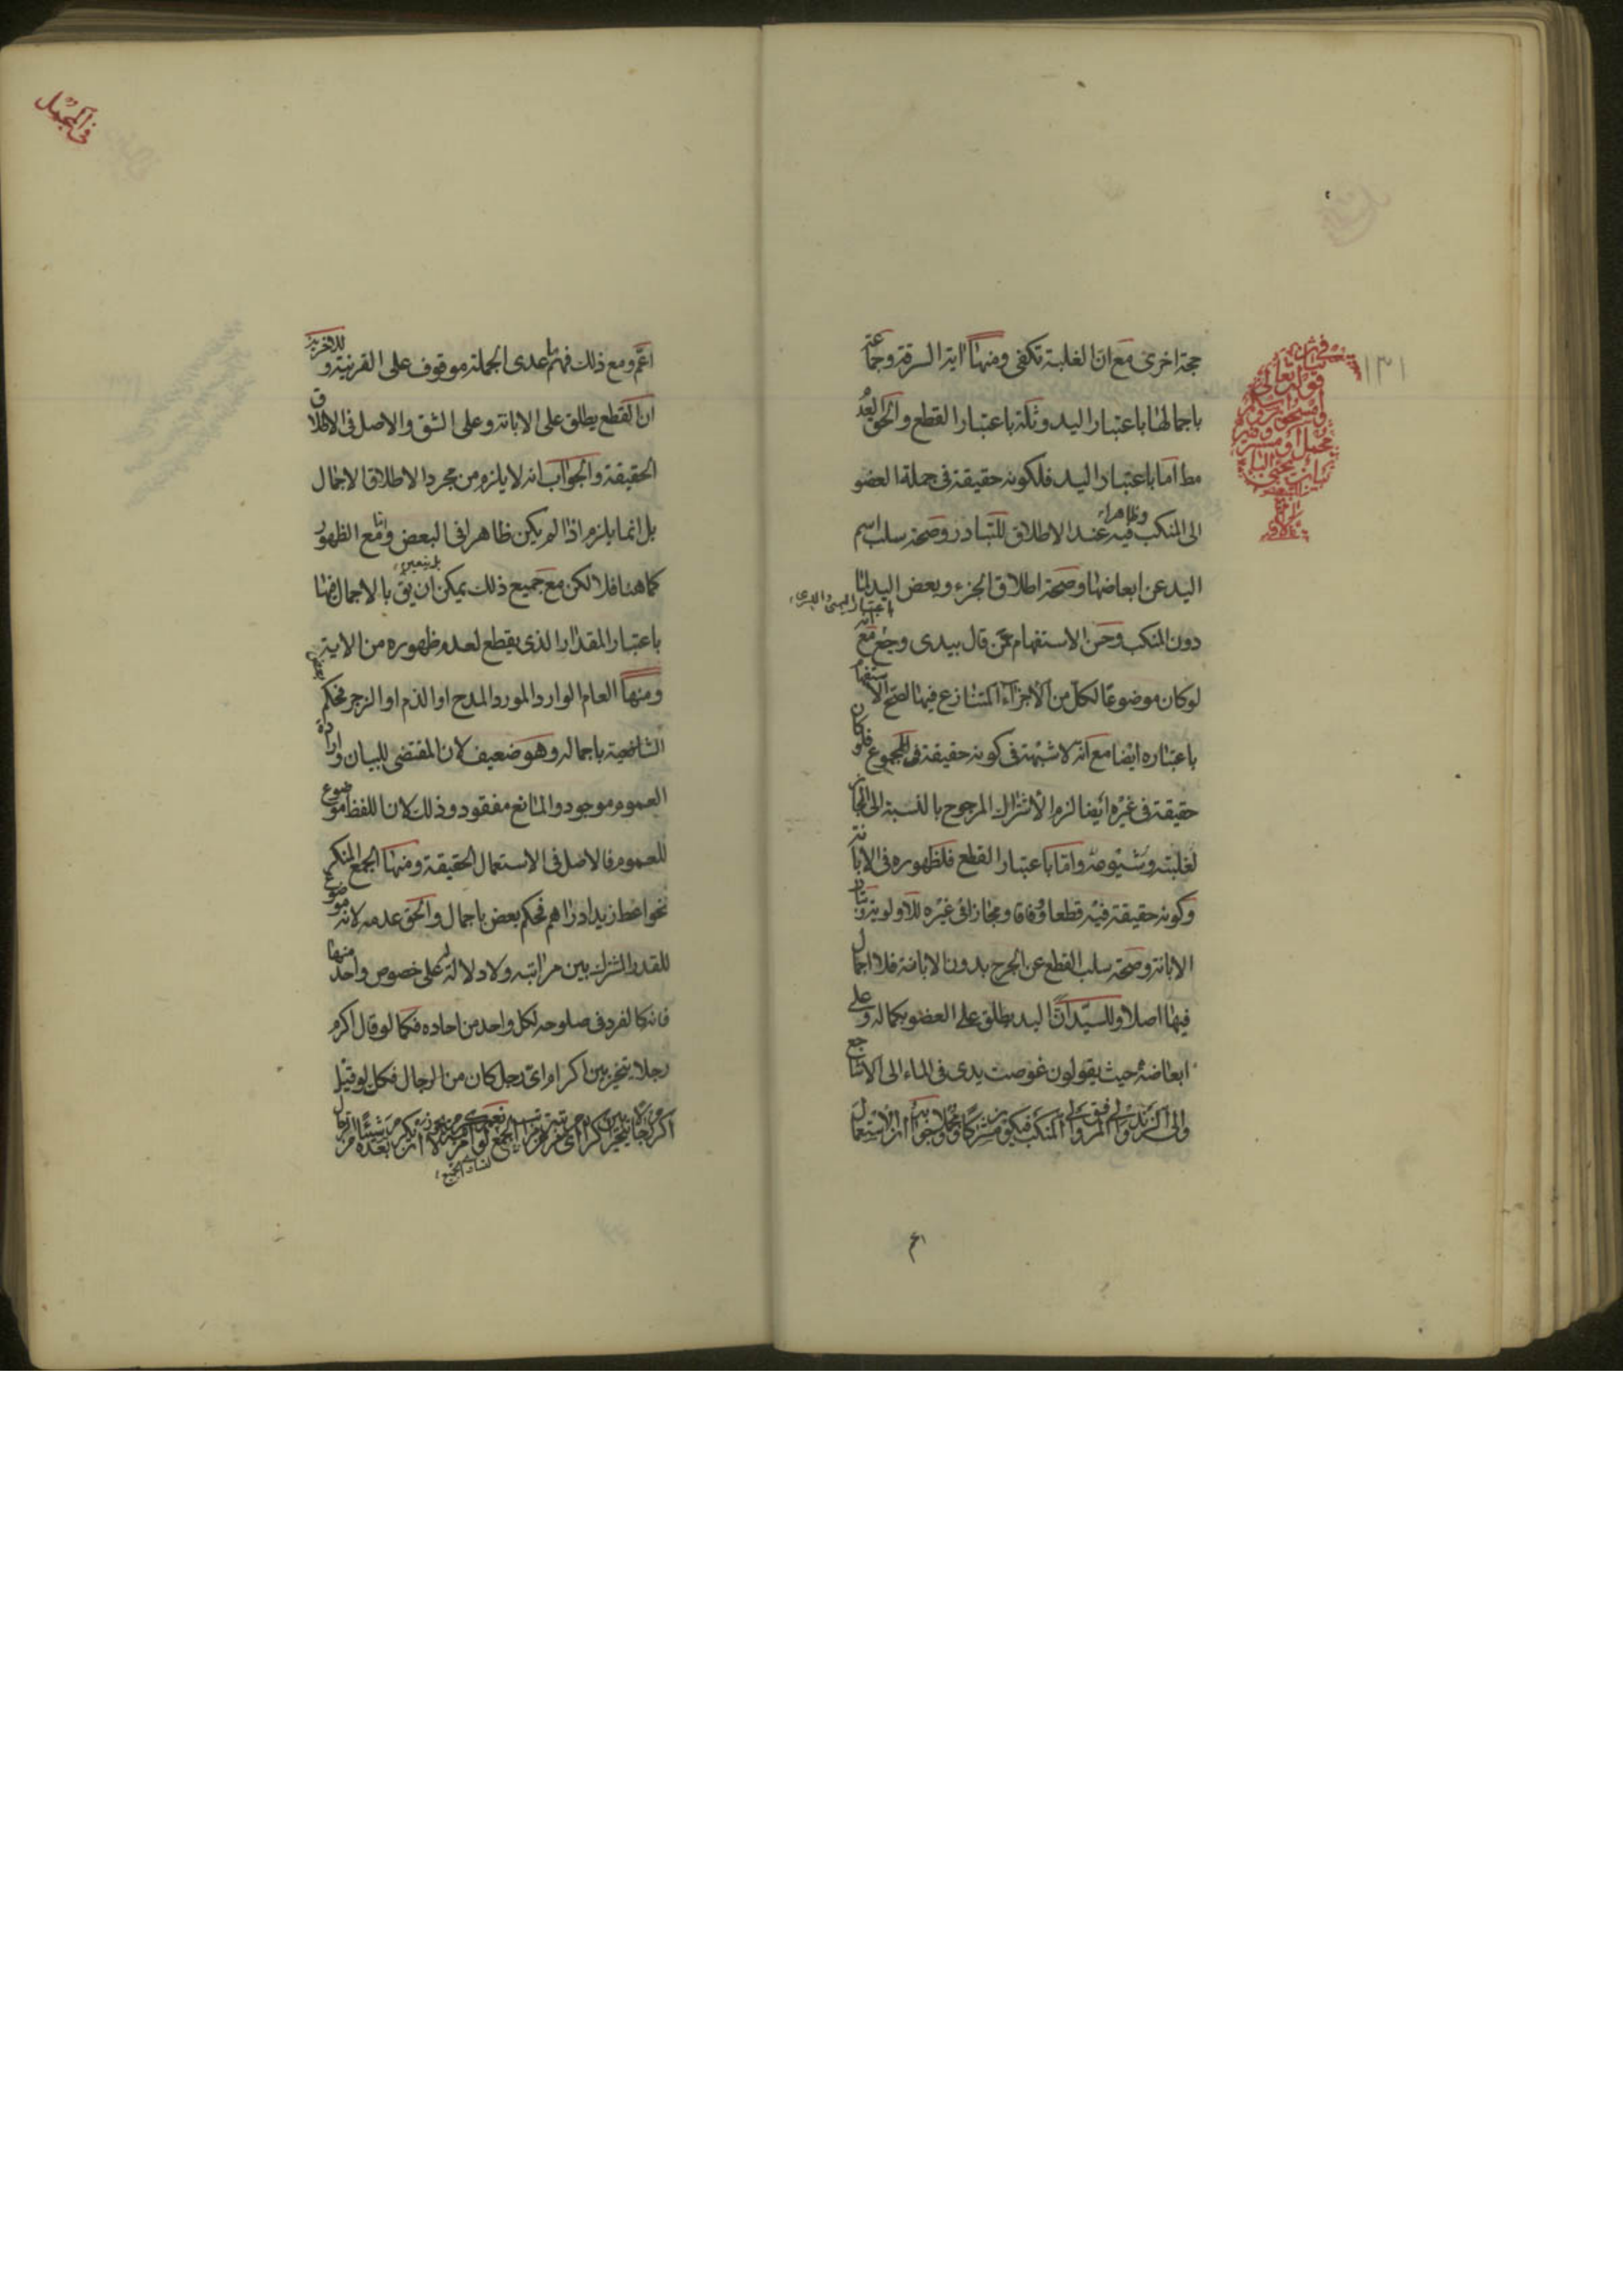 حجة اخرى مع ان الغلبة تكفى ومنها اية السرقة وجماعة
باجمالها باعتبار اليد وثلة باعتبار القطع والحق العدم
مط اما باعتبار اليد فلكونه حقيقة فى جملة العضو
الى المنكب وظاهرا فيه عند الاطلاق للتبادر وصحة سلب اسم
اليد عن ابعاضها وصحة اطلاق الجزء وبعض اليد لها
باعتبار اليمنى واليسرى
دون المنكب وحسن الاستفهام عمن قال بيدى وجع مع انه
لو كان موضوعا لكل من الاجزاء المتنازع فيها لصح الاستفهام
باعتباره ايضا مع انه لا شبهة فى كونه حقيقة فى المجموع فلو كان
حقيقة فى غيره ايضا لزم الاشتراك المرجوح بالنسبة الى المجاز
لغلبته وشيوعه واما باعتبار القطع فلظهوره فى الابانة
وكونه حقيقة فيه قطعا وفاقا ومجازا فى غيره للاولوية وتبادر
الابانة وصحة سلب القطع عن الجرح بدون الابانة فلا اجمال
فيها اصلا وللسيد ان اليد يطلق على العضو بكماله وعلى
ابعاضه حيث يقولون غوصت يدى فى الماء الى الاشاجع
والى الزند والى المرفق والى المنكب فيكون مشتركا ومجملا وجوابه ان الاستعمال
اعم
١٣١
فى المجمل
اعم ومع ذلك فهم ما عدى الجملة موقوف على القرينة وللاخرين
ان القطع يطلق على الابانة وعلى الشق والاصل فى الاطلاق
الحقيقة والجواب انه لا يلزم من مجرد الاطلاق الاجمال
بل انما يلزم اذا لم يكن ظاهرا فى البعض واما مع الظهور
كما هنا فلا لكن مع جميع ذلك يمكن ان يق بل يتعين بالاجمال فيها
باعتبار المقدار الذى يقطع لعدم ظهوره من الاية
ومنها العام الوارد المورد المدح او الذم او الزجر فحكم بعض
الشافعية باجماله وهو ضعيف لان المقتضى للبيان وارادة
العموم موجود والمانع مفقود وذلك لان اللفظ موضوع
للعموم فالاصل فى الاستعمال الحقيقة ومنها الجمع المنكر
نحو اعط زيدا دراهم فحكم بعض باجمال والحق عدمه لانه موضوع
للقدر المشترك بين مراتبه ولا دلالة له على خصوص واحد منها
فانه كالفرد فى صلوحه لكل واحد من احاده فكما لو قال اكرم
رجلا يتخير بين اكرام اى رجل كان من الرجال فكك لو قيل